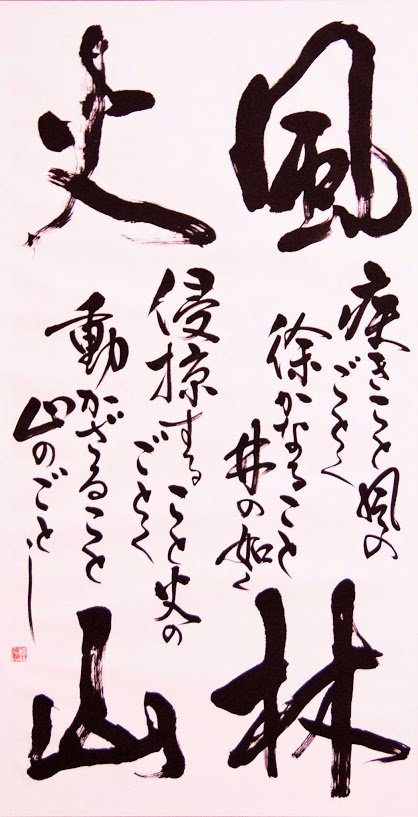 風
林
火
山
疾きこと風の
ごとく
徐かなること
林の如く
侵掠すること火の
ごとく
動かざること
山のごとし